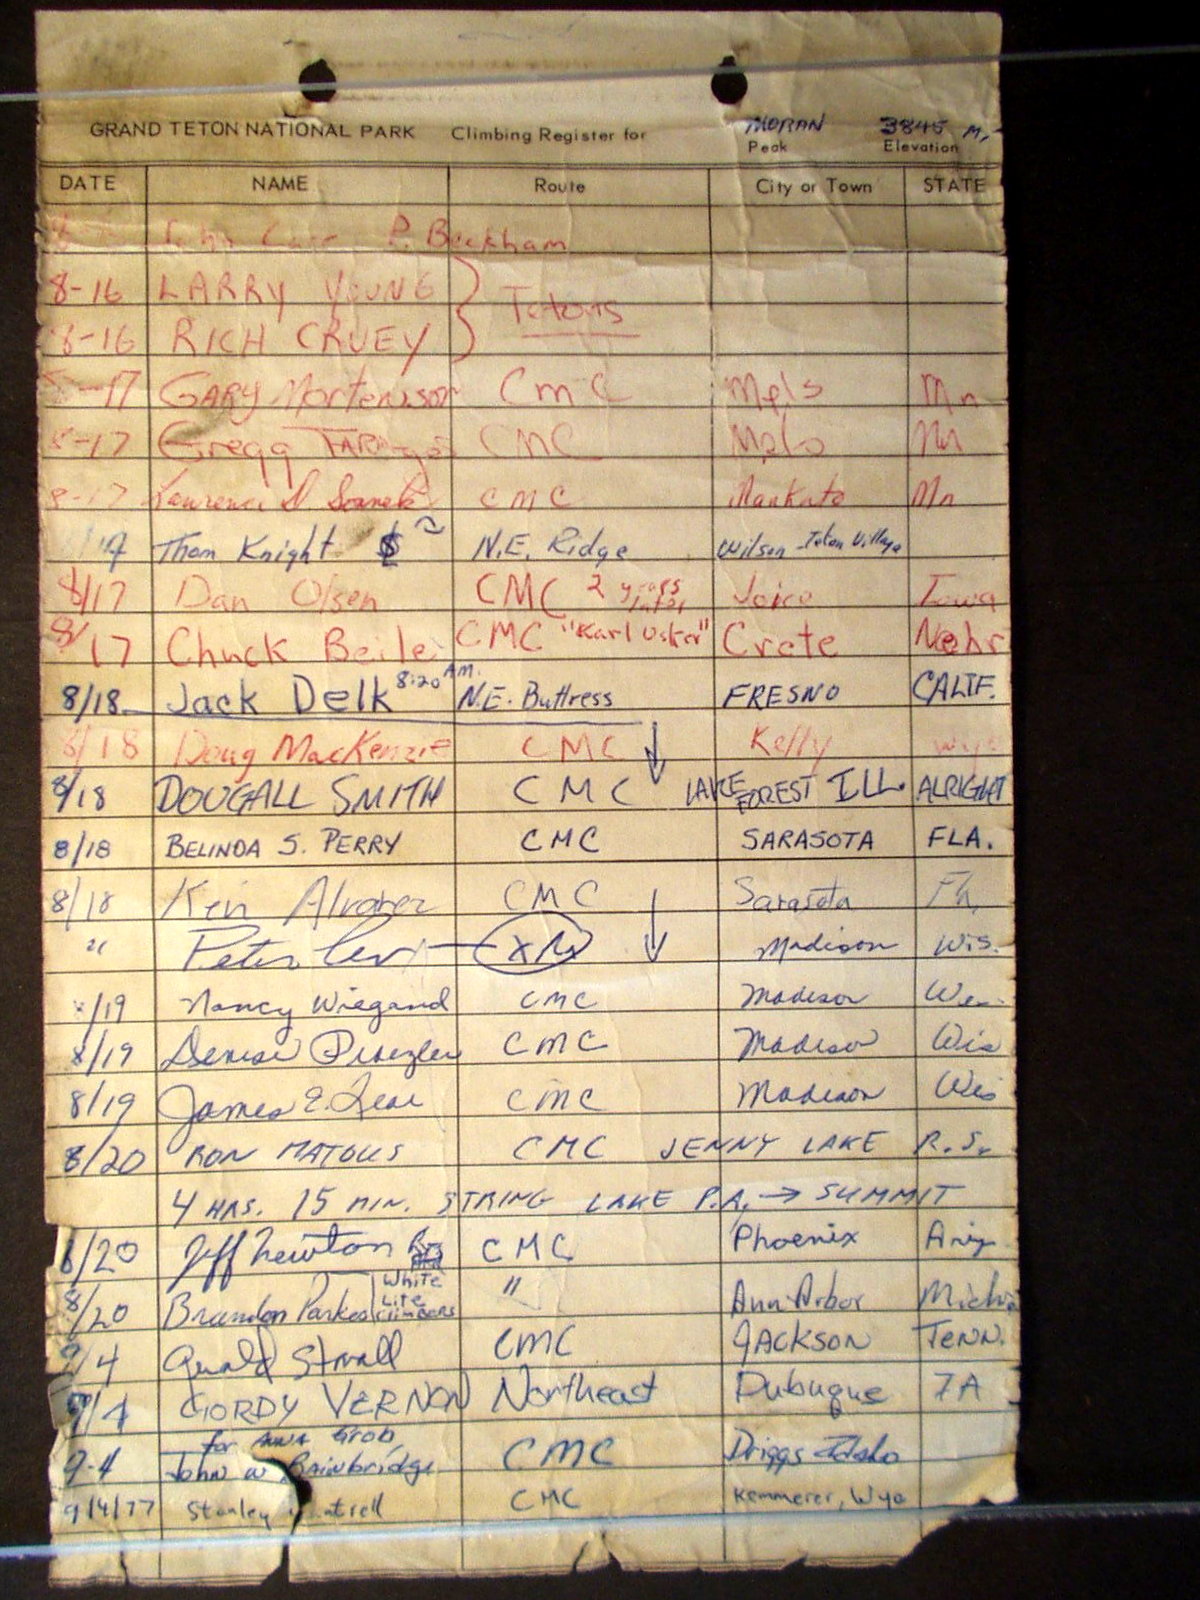 GRAND TETON NATIONAL PARK Climbing Register for MORAN Peak 3845 M. Elevation
DATE NAME Route City or Town STATE
8 John P. Beckham
8-16 LARRY YOUNG Tetons
8-16 RICH CRUEY
8-17 GARY Mortenson CMC Mpls Mn
8-17 Gregg CMC Mpls Mn
8-17 Lawrence CMC Mankato Mn
17 Thom Knight N.E. Ridge Wilson - Teton Village
8/17 Dan Olsen CMC 2 years later Joice Iowa
8/17 Chuck Beile CMC "Karl Usker" Crete Nebr
8/18 Jack Delk 8:20 AM. N.E. Buttress FRESNO CALIF.
8/18 Doug MacKenzie CMC Kelly Wyo
8/18 DOUGALL SMITH CMC LAKE FOREST ILL. ALRIGHT
8/18 BELINDA S. PERRY CMC SARASOTA FLA.
8/18 Ken Alvarez CMC Sarasota Fla,
" Peter Madison Wis.
8/19 Nancy Wiegand CMC Madison Wis.
8/19 Denise CMC Madison Wis
8/19 James E. CMC Madison Wis
8/20 RON MATOUS CMC JENNY LAKE R.S.
4 HRS. 15 MIN. STRING LAKE P.A. → SUMMIT
8/20 Jeff Newton CMC Phoenix Ariz.
8/20 Brandon Parkes White Lite Climbers " Ann Arbor Mich
9/4 Gerald Stovall CMC JACKSON TENN.
9/4 GORDY VERNON Northeast Dubuque IA
for ANNA Grob,
9-4 John W Bainbridge CMC Driggs Idaho
9/4/77 Stanley CMC Kemmerer, Wyo